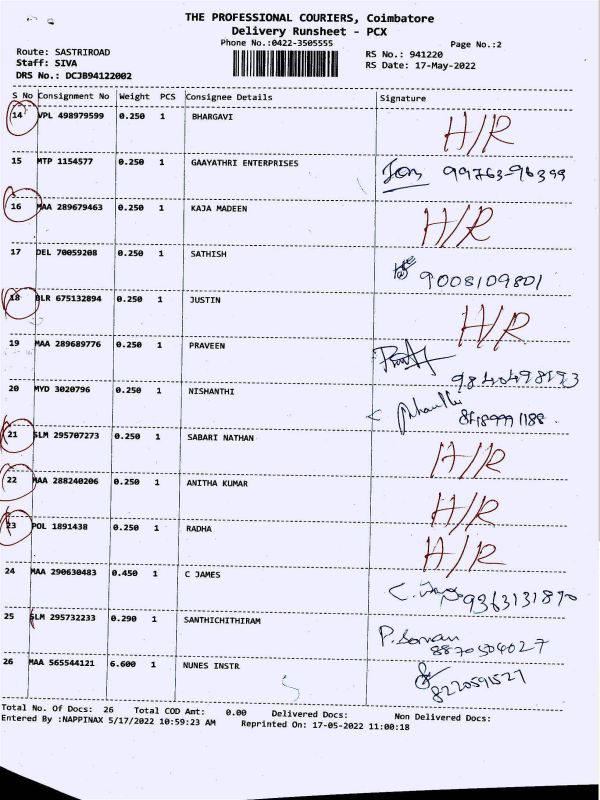 THE PROFESSIONAL COURIERS, Coimbatore
Delivery Runsheet - PCX
Phone No.:0422-3505555
Page No.:2
Route: SASTRIROAD
RS No.: 941220
Staff: SIVA
RS Date: 17-May-2022
DRS No.: DCJB94122002
S No Consignment No Weight PCS Consignee Details Signature
14 VPL 498979599 0.250 1 BHARGAVI H/R
15 MTP 1154577 0.250 1 GAAYATHRI ENTERPRISES 99763-96399
16 MAA 289679463 0.250 1 KAJA MADEEN H/R
17 DEL 70059208 0.250 1 SATHISH 9008109801
18 BLR 675132894 0.250 1 JUSTIN H/R
19 MAA 289689776 0.250 1 PRAVEEN
20 MYD 3020796 0.250 1 NISHANTHI
21 SLM 295707273 0.250 1 SABARI NATHAN H/R
22 MAA 288240206 0.250 1 ANITHA KUMAR H/R
23 POL 1891438 0.250 1 RADHA H/R
24 MAA 290630483 0.450 1 C JAMES 9363131890
25 SLM 295732233 0.290 1 SANTHICHITHIRAM
26 MAA 565544121 6.600 1 NUNES INSTR 8220591527
Total No. Of Docs: 26 Total COD Amt: 0.00 Delivered Docs: Non Delivered Docs:
Entered By :NAPPINAX 5/17/2022 10:59:23 AM Reprinted On: 17-05-2022 11:00:18